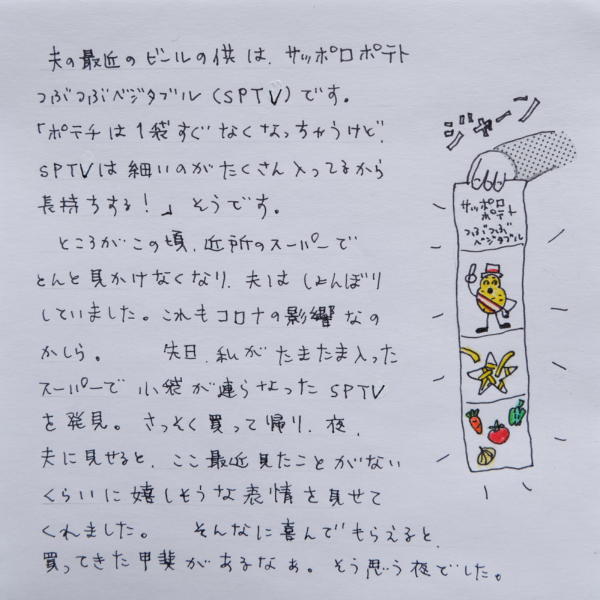 夫の最近のビールの供は、サッポロポテト
つぶつぶベジタブル(SPTV)です。
「ポテチは1袋すぐなくなっちゃうけど、
SPTVは細いのがたくさん入ってるから
長持ちする!」そうです。
ところがこの頃、近所のスーパーで
とんと見かけなくなり、夫はしょんぼり
していました。これもコロナの影響なの
かしら。 先日、私がたまたま入った
スーパーで小袋が連らなったSPTV
を発見。さっそく買って帰り、夜、
夫に見せると、ここ最近見たことがない
くらいに嬉しそうな表情を見せて
くれました。 そんなに喜んでもらえると、
買ってきた甲斐があるなぁ。そう思う夜でした。
ジャーン
サッポロ
ポテト
つぶつぶ
ベジタブル